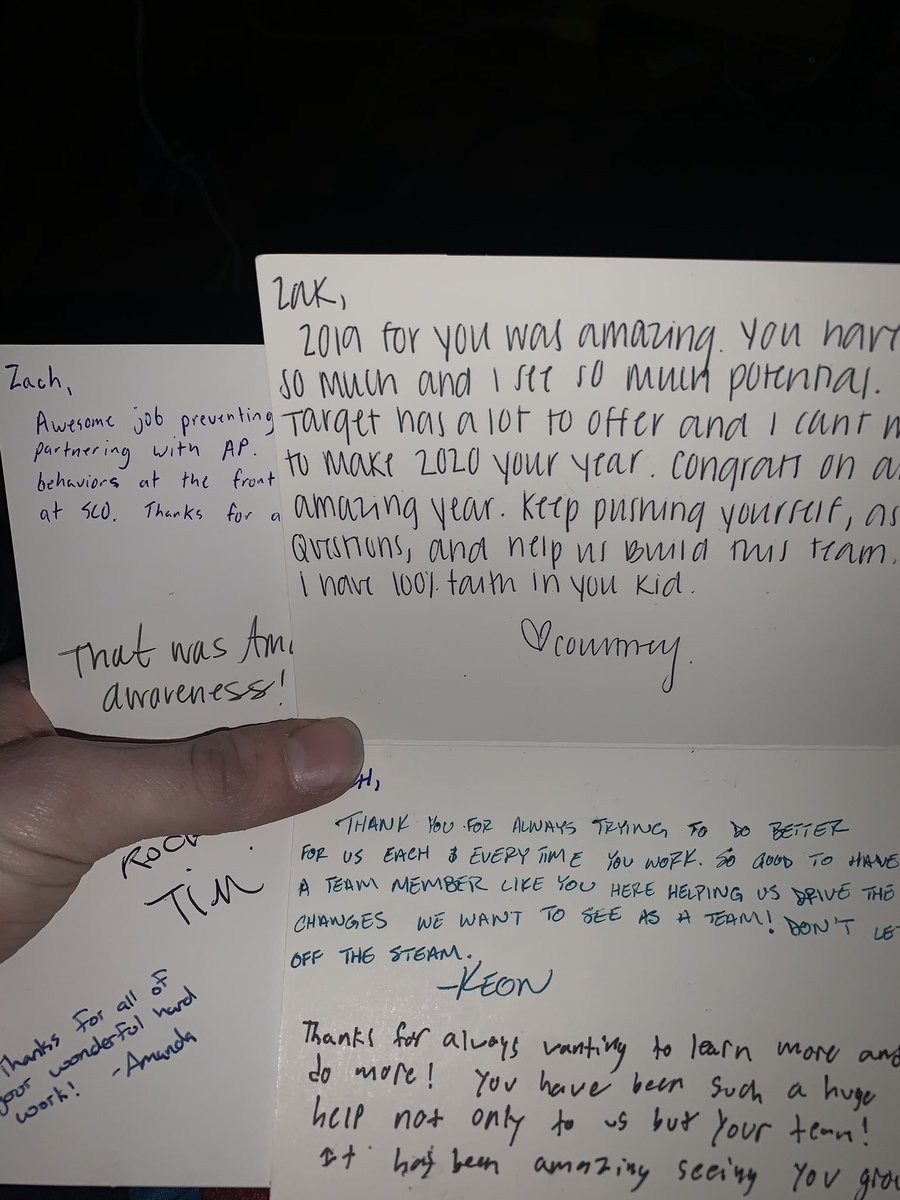 Zach,
Awesome job preventing
partnering with AP.
behaviors at the front
at SCO. Thanks for a
That was Am
awareness!
Tim
Thanks for all of
your wonderful hard
work! -Amanda
Zak,
2019 for you was amazing. You have
so much and I see so much potential.
Target has a lot to offer and I cant
to make 2020 your year. Congrats on
amazing year. Keep pushing yourself, as
Questions, and help us Build This team.
I have 100% faith in you kid.
♡courtney.
H,
THANK YOU FOR ALWAYS TRYING TO DO BETTER
FOR US EACH & EVERY TIME YOU WORK. SO GOOD TO HAVE
A TEAM MEMBER LIKE YOU HERE HELPING US DRIVE THE
CHANGES WE WANT TO SEE AS A TEAM! DON'T LE
OFF THE STEAM.
-KEON
Thanks for always wanting to learn more and
do more! You have been such a huge
help not only to us but your team!
It has been amazing seeing you grow